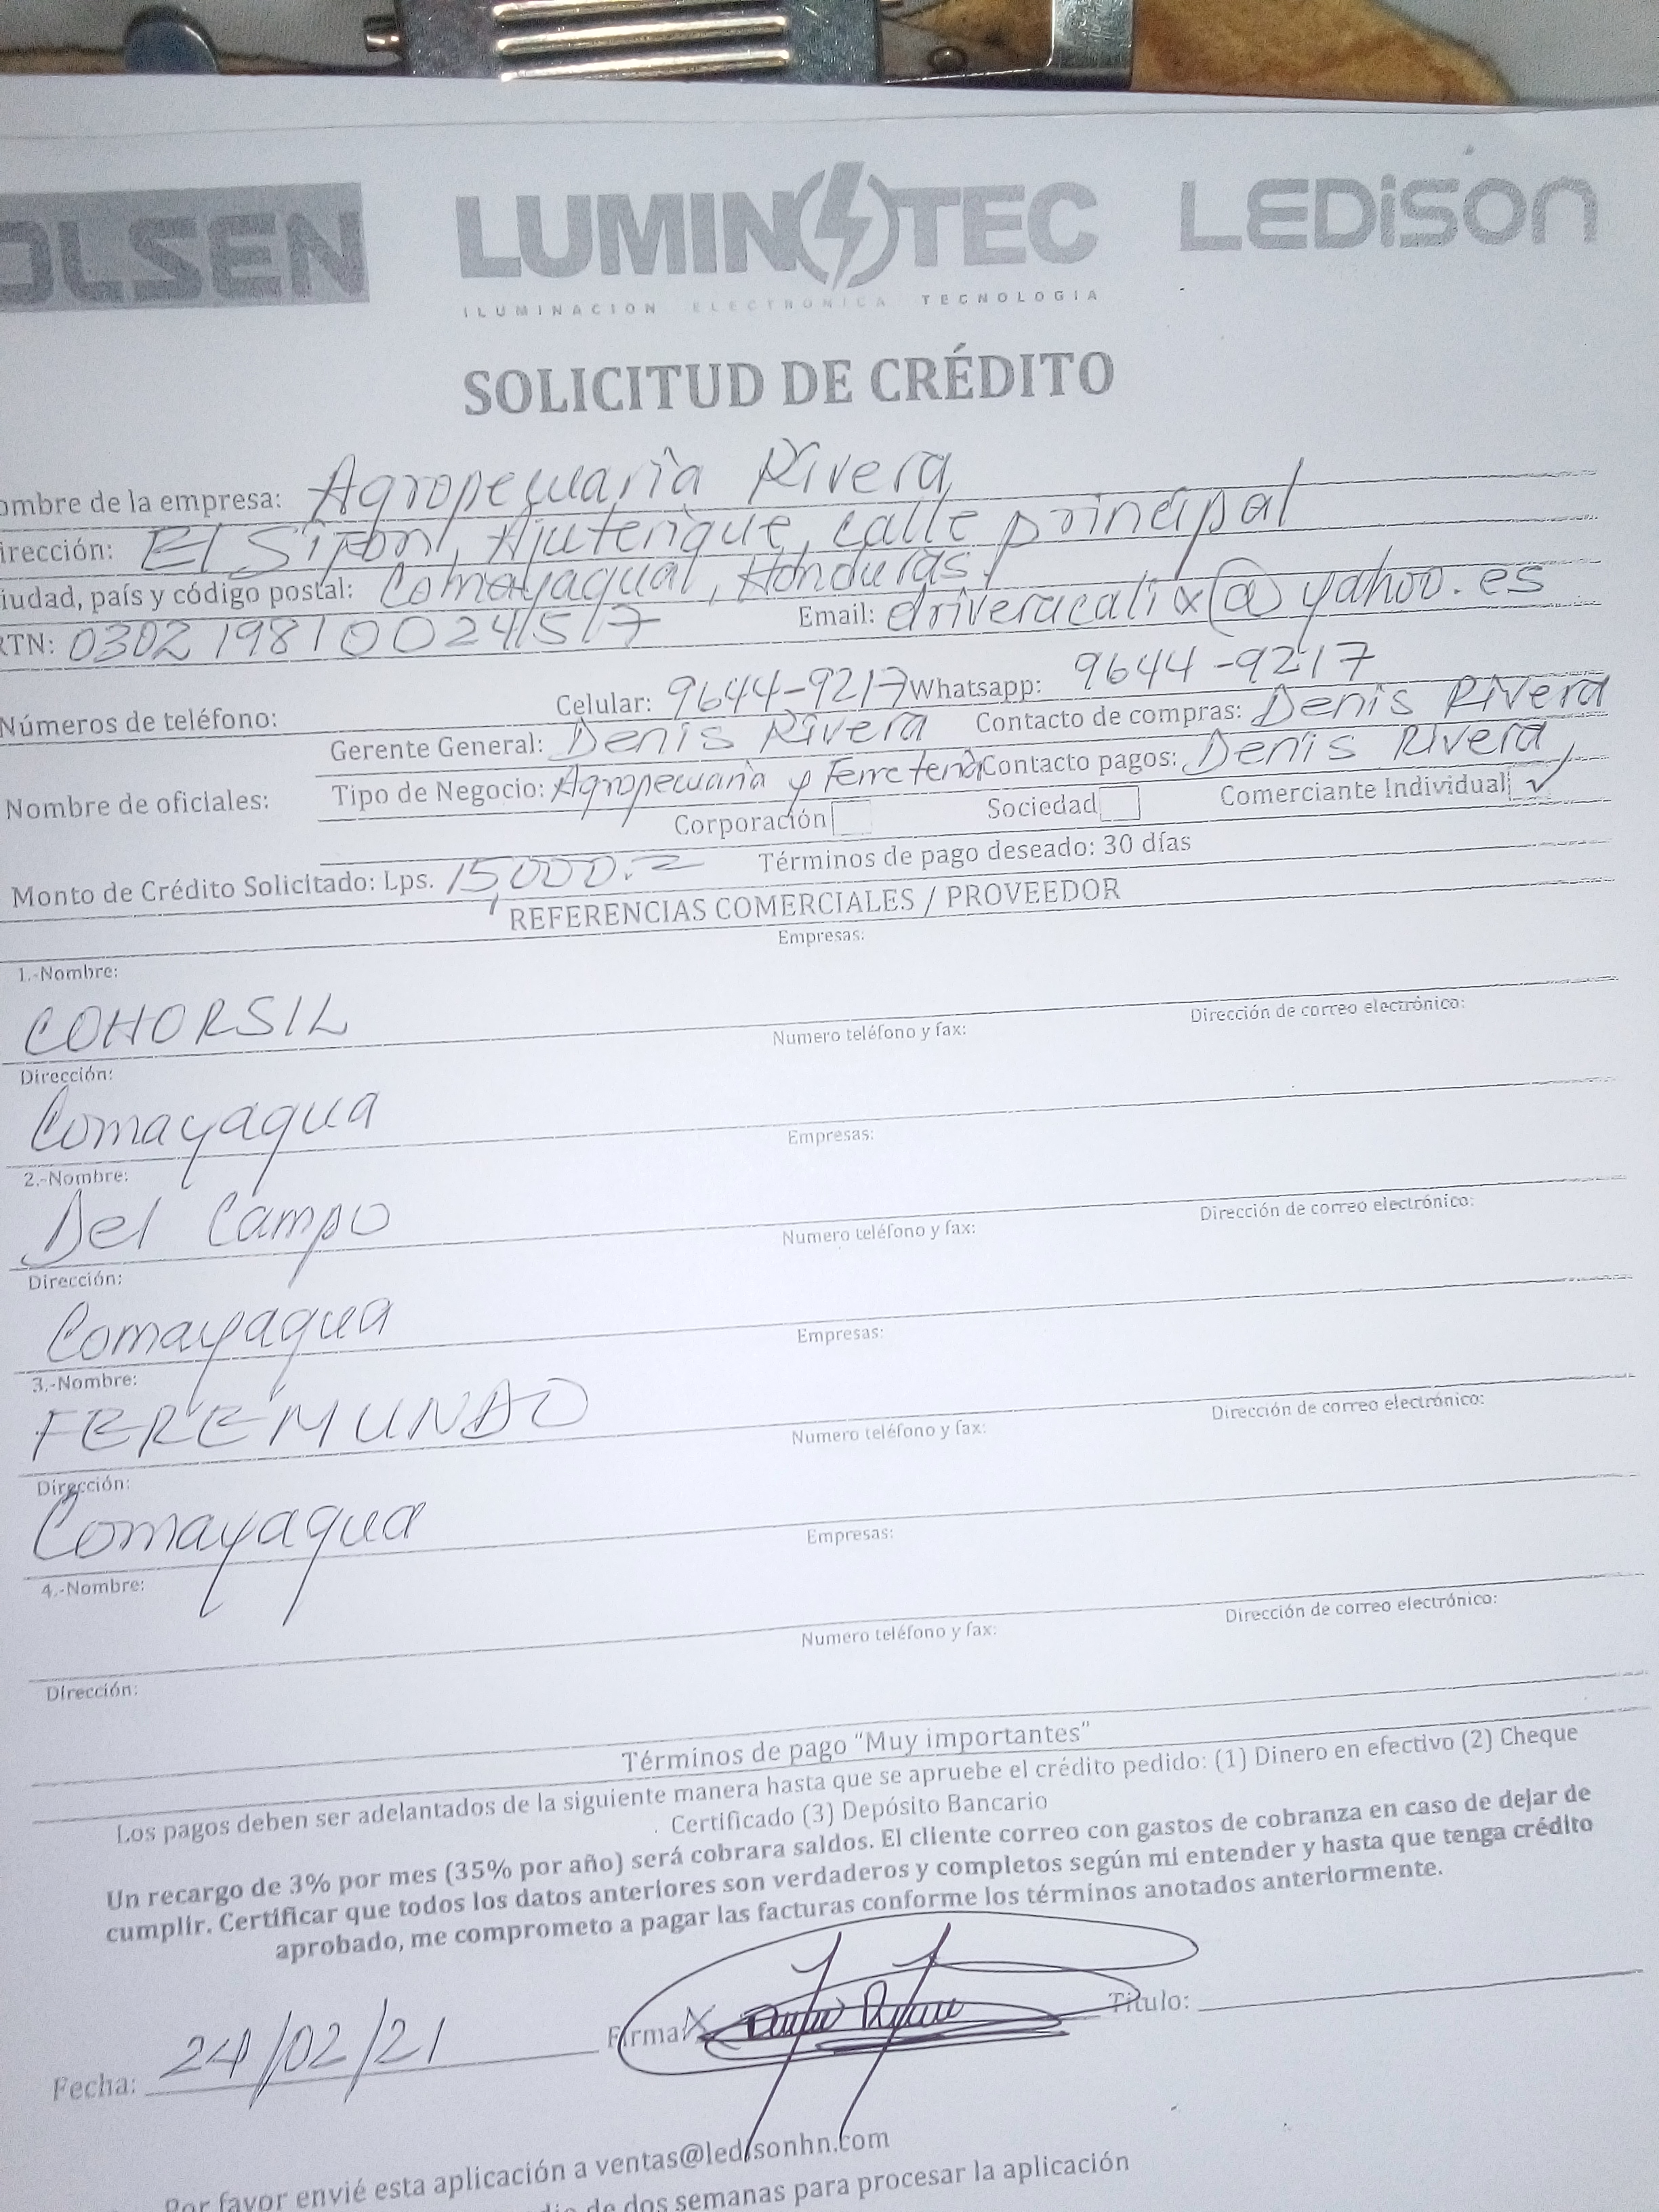 OLSEN LUMINOTEC LEDISON
ILUMINACION ELECTRONICA TECNOLOGIA
SOLICITUD DE CRÉDITO
ombre de la empresa: Agropecuaria Rivera
irección: El Sifon, Ajuterique, calle principal
iudad, país y código postal: Comayagua, Honduras
RTN: 03021981002457 Email: driveracalix@yahoo.es
Números de teléfono: Celular: 9644-9217 Whatsapp: 9644-9217
Gerente General: Denis Rivera Contacto de compras: Denis Rivera
Nombre de oficiales: Tipo de Negocio: Agropecuaria y Ferreteria Contacto pagos: Denis Rivera
Corporación Sociedad Comerciante Individual ✓
Monto de Crédito Solicitado: Lps. 15,000.= Términos de pago deseado: 30 días
REFERENCIAS COMERCIALES / PROVEEDOR
1.-Nombre: Empresas:
COHORSIL
Dirección: Numero teléfono y fax: Dirección de correo electrónico:
Comayagua
2.-Nombre: Empresas:
Del Campo
Dirección: Numero teléfono y fax: Dirección de correo electrónico:
Comayagua
3.-Nombre: Empresas:
FEREMUNDO
Dirección: Numero teléfono y fax: Dirección de correo electrónico:
Comayagua
4.-Nombre: Empresas:
Dirección: Numero teléfono y fax: Dirección de correo electrónico:
Términos de pago "Muy importantes"
Los pagos deben ser adelantados de la siguiente manera hasta que se apruebe el crédito pedido: (1) Dinero en efectivo (2) Cheque
Certificado (3) Depósito Bancario
Un recargo de 3% por mes (35% por año) será cobrara saldos. El cliente correo con gastos de cobranza en caso de dejar de
cumplir. Certificar que todos los datos anteriores son verdaderos y completos según mi entender y hasta que tenga crédito
aprobado, me comprometo a pagar las facturas conforme los términos anotados anteriormente.
Fecha: 24/02/21 Firma X Titulo:
Por favor envié esta aplicación a ventas@ledisonhn.com
de dos semanas para procesar la aplicación